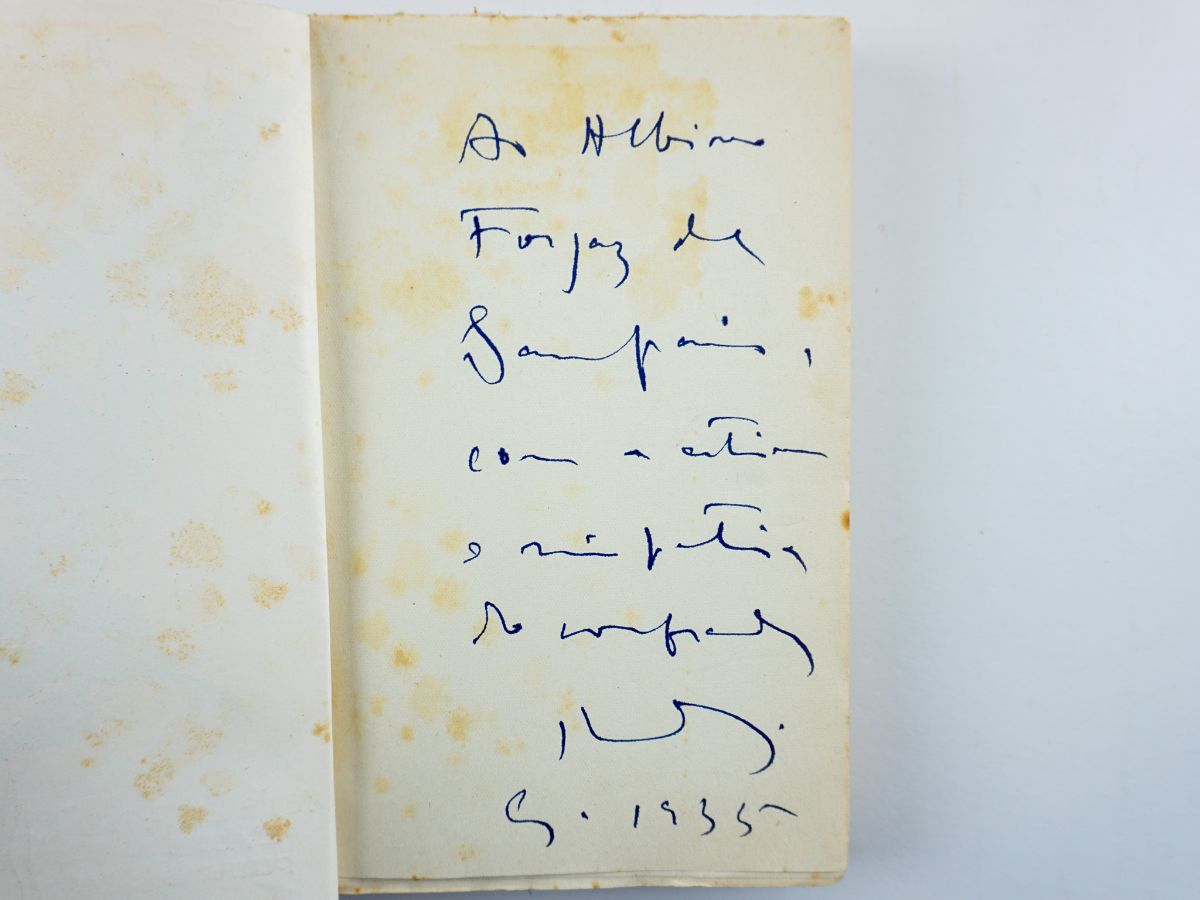 Ao Albino
Forjaz de
Sampaio,
com a estima
e simpatia
do confrade
C. 1935